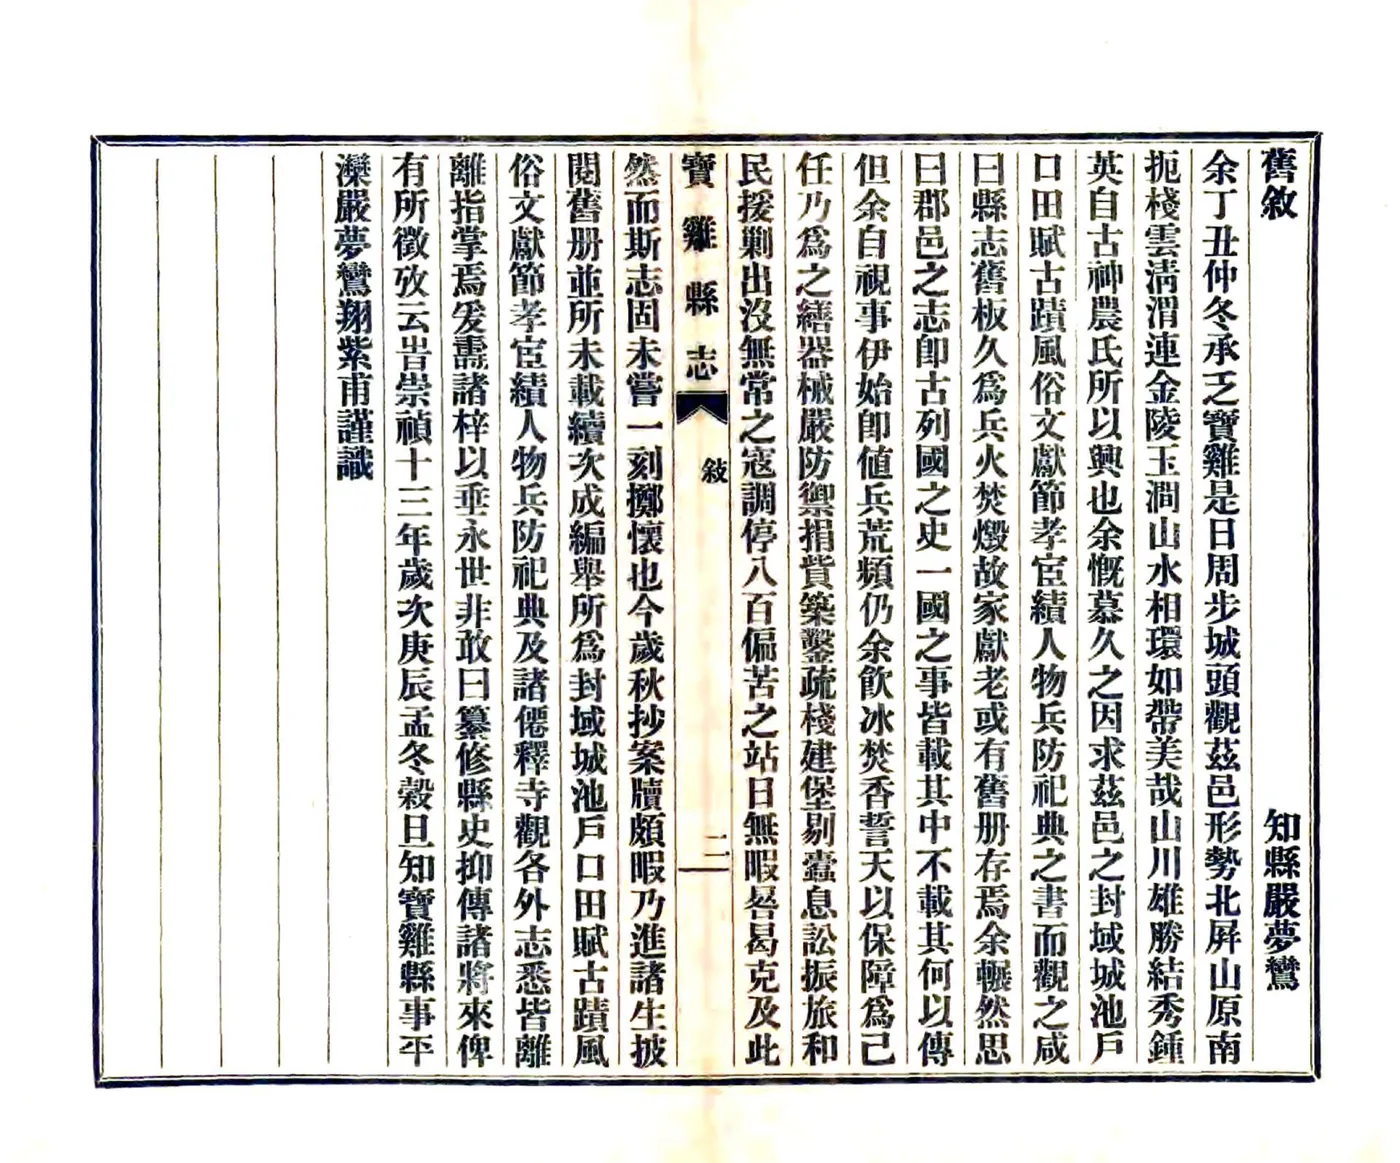 舊敘　知縣嚴夢鸞
余丁丑仲冬承乏寶雞是日周步城頭觀茲邑形勢北屏山原南
扼棧雲清渭連金陵玉澗山水相環如帶美哉山川雄勝結秀鍾
英自古神農氏所以興也余慨慕久之因求茲邑之封域城池戶
口田賦古蹟風俗文獻節孝宦績人物兵防祀典之書而觀之咸
曰縣志舊板久爲兵火焚燬故家獻老或有舊册存焉余輾然思
曰郡邑之志卽古列國之史一國之事皆載其中不載其何以傳
但余自視事伊始卽値兵荒頻仍余飮冰焚香誓天以保障爲己
任乃爲之繕器械嚴防禦捐貲築鑿疏棧建堡剔蠹息訟振旅和
民援剿出沒無常之寇調停八百偏苦之站日無暇晷曷克及此
寶雞縣志　敍　二
然而斯志固未嘗一刻擲懷也今歲秋抄案牘頗暇乃進諸生披
閱舊册並所未載續次成編舉所爲封域城池戶口田賦古蹟風
俗文獻節孝宦績人物兵防祀典及諸僊釋寺觀各外志悉皆離
離指掌焉爰壽諸梓以垂永世非敢曰纂修縣史抑傳諸將來俾
有所徵攷云旹崇禎十三年歲次庚辰孟冬榖旦知寶雞縣事平
灤嚴夢鸞翔紫甫謹識